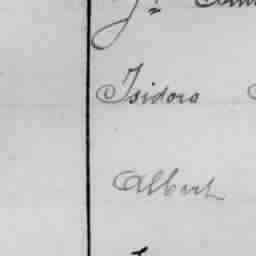 Isidoro
Albert